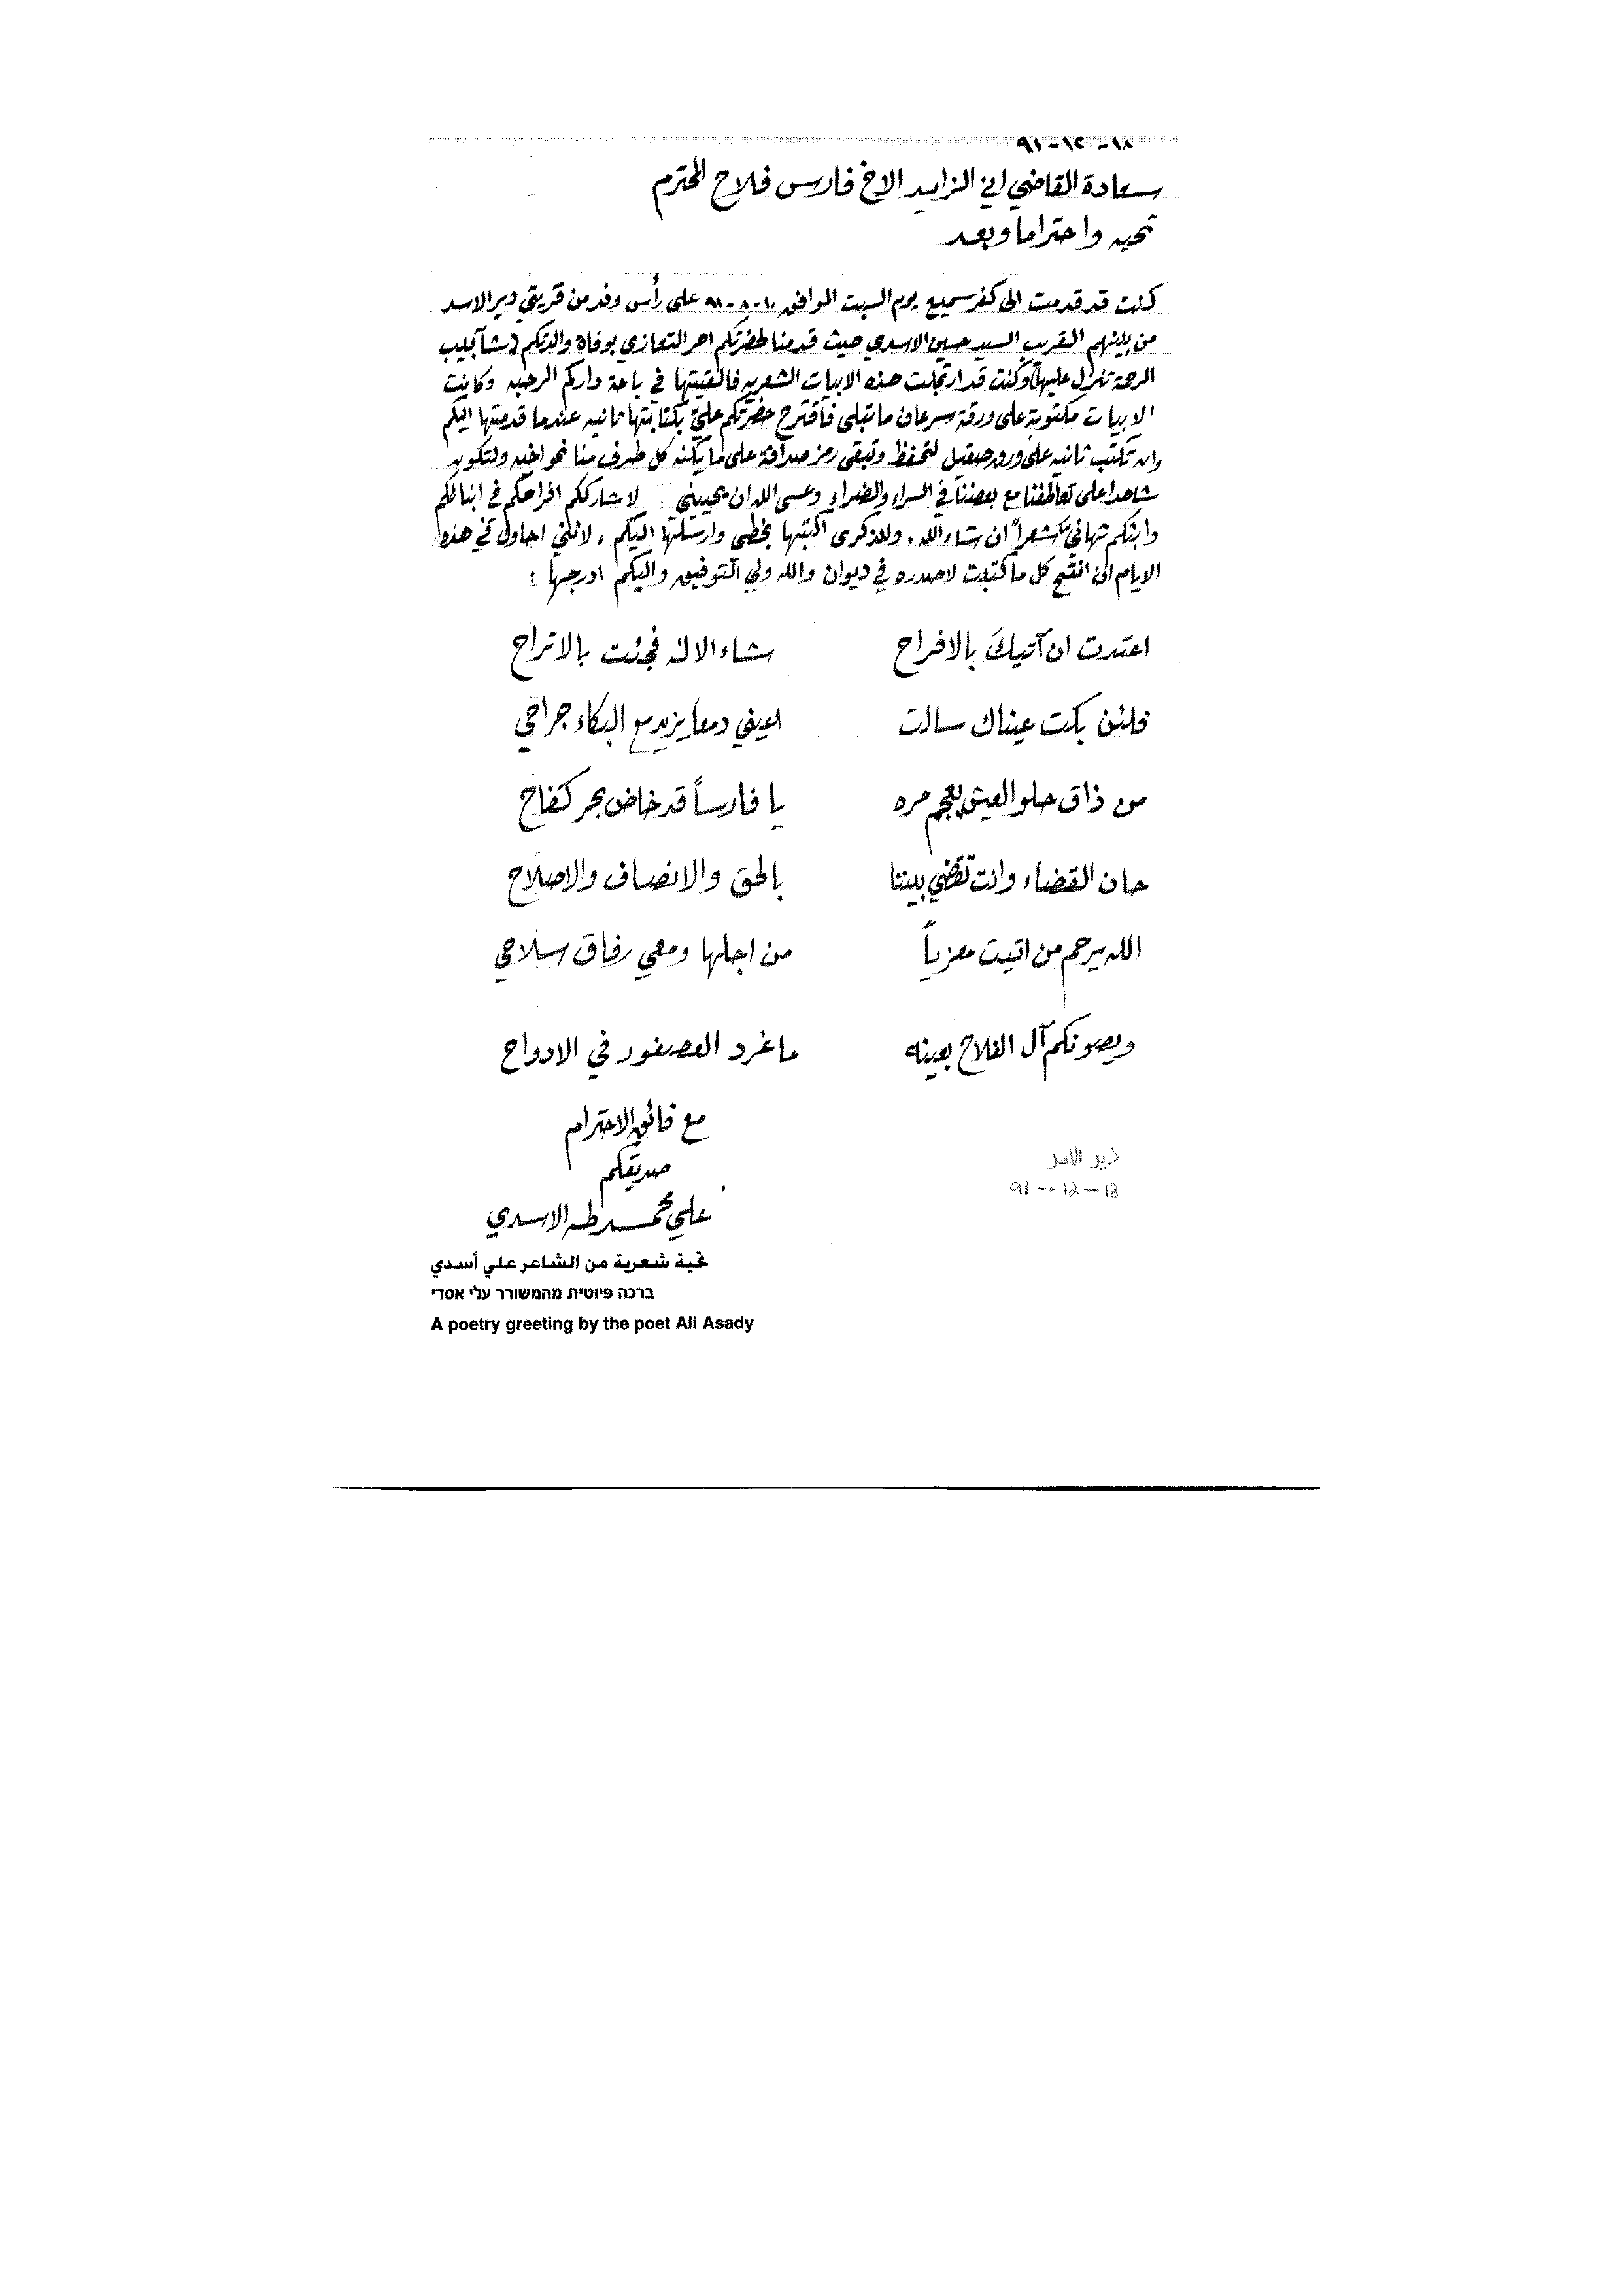 ١٨-١٢-٩١
سعادة القاضي ابي الزايد الاخ فارس فلاح المحترم
تحيه واحتراما وبعد
كنت قد قدمت الى كفرسميع يوم السبت الموافق ١٠-٨-٩١ على رأس وفد من قريتي دير الاسد
من بينهم القريب السيد حسين الاسدي حيث قدمنا لحضرتكم احر التعازي بوفاة والدتكم (شآبيب
الرحمة تنزل عليها) وكنت قد ارتجلت هذه الابيات الشعريه فالقيتها في باحة داركم الرحبه وكانت
الابيات مكتوبة على ورقة سرعان ما تبلى فأقترح حضرتكم عليّ بكتابتها ثانيه عندما قدمتها اليكم
وان تكتب ثانيه على ورق صقيل لتحفظ وتبقى رمز صداقة على ما يكنه كل طرف منا نحو اخيه ولتكون
شاهدا على تعاطفنا مع بعضنا في السراء والضراء وعسى الله ان يحييني لاشارككم افراحكم في ابنائكم
وابنكم تهاني شعراً ان شاء الله. وللذكرى اكتبها بخطي وارسلتها اليكم، لانني احاول في هذه
الايام ان انقح كل ما كتبت لاصدره في ديوان والله ولي التوفيق واليكم ادرجها:
اعتدت ان آتيكَ بالافراح شاء الاله فجئت بالاتراح
فلئن بكت عيناك سالت اعيني دمعا يزيد مع البكاء جراحي
من ذاق حلو العيش يعجم مره يا فارساً قد خاض بحر كفاح
حان القضاء وانت تقضي بيننا بالحق والانصاف والاصلاح
الله يرحم من اتيت معزياً من اجلها ومعي رفاق سلاحي
ويصونكم آل الفلاح بعينه ما غرد العصفور في الادواح
مع فائق الاحترام
صديقكم
علي محمد طه الاسدي
دير الاسد
91-12-18
تحية شعرية من الشاعر علي أسدي
ברכה פיוטית מהמשורר עלי אסדי
A poetry greeting by the poet Ali Asady